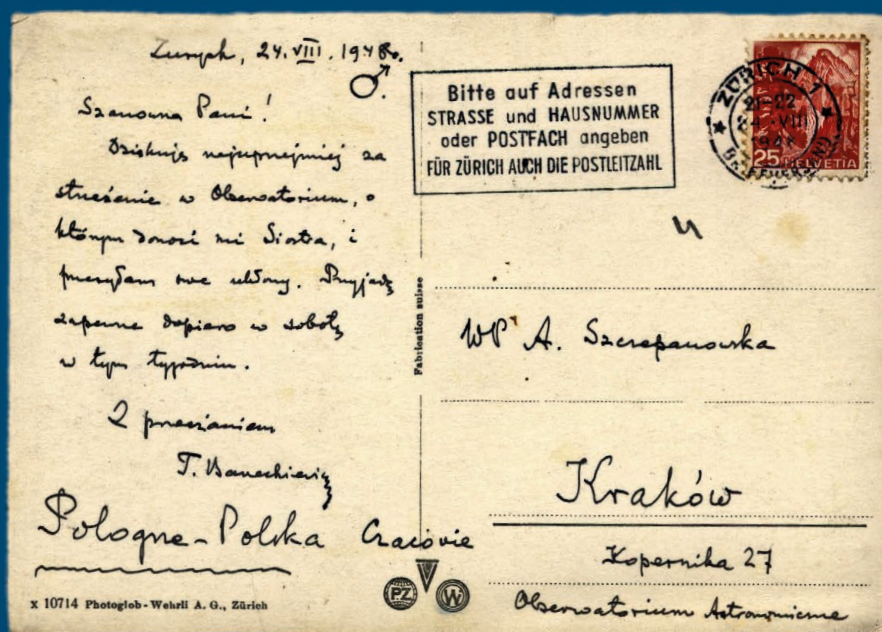 Zurych, 24.VIII.1948.
♂.
Szanowna Pani!
Dziękuję najuprzejmiej za
streszczenie w Obserwatorium, o
którym donosi mi Siostra, i
przesyłam swe ukłony. Przyjadę
zapewne dopiero w sobotę
w tym tygodniu.
Z poważaniem
T. Banachiewicz
Pologne-Polska Cracovie
x 10714 Photoglob-Wehrli A. G., Zürich
PZ W
Fabrication suisse
Bitte auf Adressen
STRASSE und HAUSNUMMER
oder POSTFACH angeben
FÜR ZÜRICH AUCH DIE POSTLEITZAHL
ZÜRICH 1
21-22
24 VIII
1948
25 HELVETIA
WP A. Szczepanowska
Kraków
Kopernika 27
Obserwatorium Astronomiczne